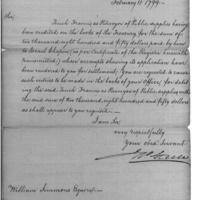 February 11 1799.
Sir,
Tench Francis as Purveyor of Public supplies having
been credited on the books of the Treasury for the sum of
ten thousand eight hundred and fifty dollars paid by him
to Israel Chapin (as per Certificate of the Register herewith
transmitted) whose accounts shewing its application have
been rendered to you for settlement; You are requested to cause
such entries to be made on the books of your Office, for deb-
iting the said Tench Francis as Purveyor of Public supplies with
the said sum of ten thousand, eight hundred and fifty dollars
as shall appear to you requisite.
I am Sir
very respectfully
Your obed. Servant
William Simmons Esquire